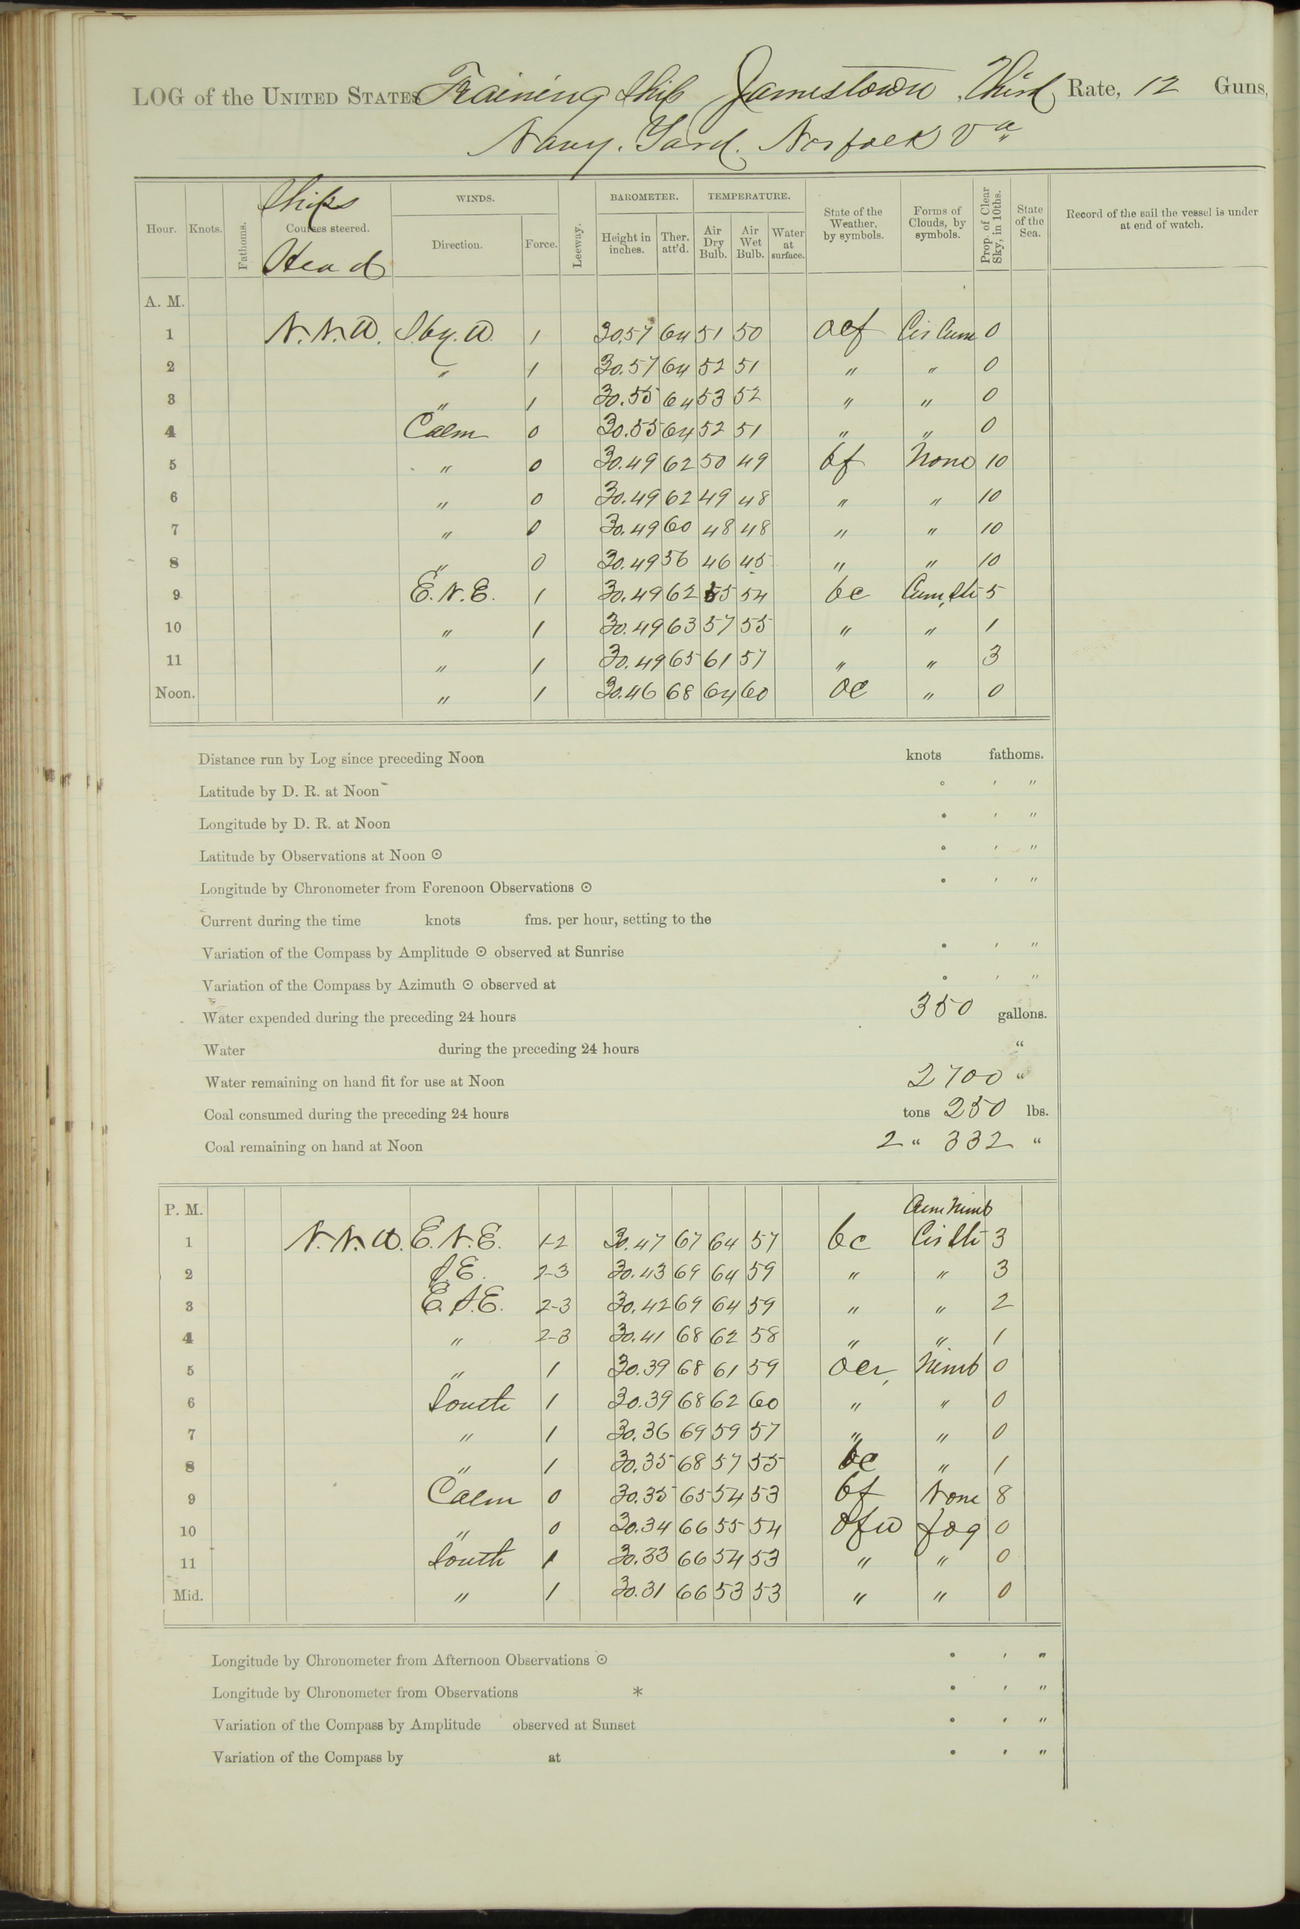 LOG of the UNITED STATES Training Ship Jamestown, Third Rate, 12 Guns,
Navy. Yard. Norfolk Va
Hour. Knots. Fathoms. Ships Courses steered. Head WINDS. Direction. Force. Leeway. BAROMETER. Height in inches. Ther. att'd. TEMPERATURE. Air Dry Bulb. Air Wet Bulb. Water at surface. State of the Weather, by symbols. Forms of Clouds, by symbols. Prop. of Clear Sky, in 10ths. State of the Sea. Record of the sail the vessel is under at end of watch.
A. M.
1 N.N.W. S.by.W. 1 30.57 64 51 50 ocf Cir Cum 0
2 " 1 30.57 64 52 51 " " 0
3 " 1 30.55 64 53 52 " " 0
4 Calm 0 30.55 64 52 51 " " 0
5 " 0 30.49 62 50 49 bf None 10
6 " 0 30.49 62 49 48 " " 10
7 " 0 30.49 60 48 48 " " 10
8 " 0 30.49 56 46 45 " " 10
9 E.N.E. 1 30.49 62 55 54 bc Cum, Str 5
10 " 1 30.49 63 57 55 " " 1
11 " 1 30.49 65 61 57 " " 3
Noon. " 1 30.46 68 64 60 oc " 0
Distance run by Log since preceding Noon knots fathoms.
Latitude by D. R. at Noon ° ' "
Longitude by D. R. at Noon ° ' "
Latitude by Observations at Noon ☉ ° ' "
Longitude by Chronometer from Forenoon Observations ☉ ° ' "
Current during the time knots fms. per hour, setting to the
Variation of the Compass by Amplitude ☉ observed at Sunrise ° ' "
Variation of the Compass by Azimuth ☉ observed at ° ' "
Water expended during the preceding 24 hours 350 gallons.
Water during the preceding 24 hours "
Water remaining on hand fit for use at Noon 2700 "
Coal consumed during the preceding 24 hours tons 250 lbs.
Coal remaining on hand at Noon 2 " 332 "
P. M. Cum Nimb
1 N.N.W. E.N.E. 1-2 30.47 67 64 57 bc Cir Str 3
2 S.E. 2-3 30.43 69 64 59 " " 3
3 E.S.E. 2-3 30.42 69 64 59 " " 2
4 " 2-3 30.41 68 62 58 " " 1
5 " 1 30.39 68 61 59 ocr, Nimb 0
6 South 1 30.39 68 62 60 " " 0
7 " 1 30.36 69 59 57 " " 0
8 " 1 30.35 68 57 55 bc " 1
9 Calm 0 30.35 65 54 53 bf None 8
10 " 0 30.34 66 55 54 ofw fog 0
11 South 1 30.33 66 54 53 " " 0
Mid. " 1 30.31 66 53 53 " " 0
Longitude by Chronometer from Afternoon Observations ☉ ° ' "
Longitude by Chronometer from Observations * ° ' "
Variation of the Compass by Amplitude observed at Sunset ° ' "
Variation of the Compass by at ° ' "